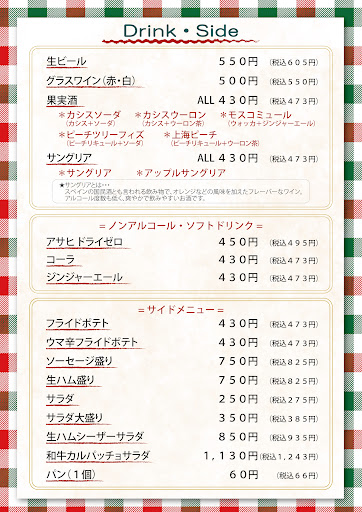 Drink・Side
生ビール 550円 (税込605円)
グラスワイン(赤・白) 500円 (税込550円)
果実酒 ALL 430円 (税込473円)
＊カシスソーダ ＊カシスウーロン ＊モスコミュール
(カシス+ソーダ) (カシス+ウーロン茶) (ウォッカ+ジンジャーエール)
＊ピーチツリーフィズ ＊上海ピーチ
(ピーチリキュール+ソーダ) (ピーチリキュール+ウーロン茶)
サングリア ALL 430円 (税込473円)
＊サングリア ＊アップルサングリア
★サングリアとは・・・
スペインの国民酒とも言われる飲み物で、オレンジなどの風味を加えたフレーバーなワイン。
アルコール度数も低く、爽やかで飲みやすいお酒です。
＝ノンアルコール・ソフトドリンク＝
アサヒ ドライゼロ 450円 (税込495円)
コーラ 430円 (税込473円)
ジンジャーエール 430円 (税込473円)
＝サイドメニュー＝
フライドポテト 430円 (税込473円)
ウマ辛フライドポテト 430円 (税込473円)
ソーセージ盛り 750円 (税込825円)
生ハム盛り 750円 (税込825円)
サラダ 250円 (税込275円)
サラダ大盛り 350円 (税込385円)
生ハムシーザーサラダ 850円 (税込935円)
和牛カルパッチョサラダ 1,130円(税込1,243円)
パン(1個) 60円 (税込66円)